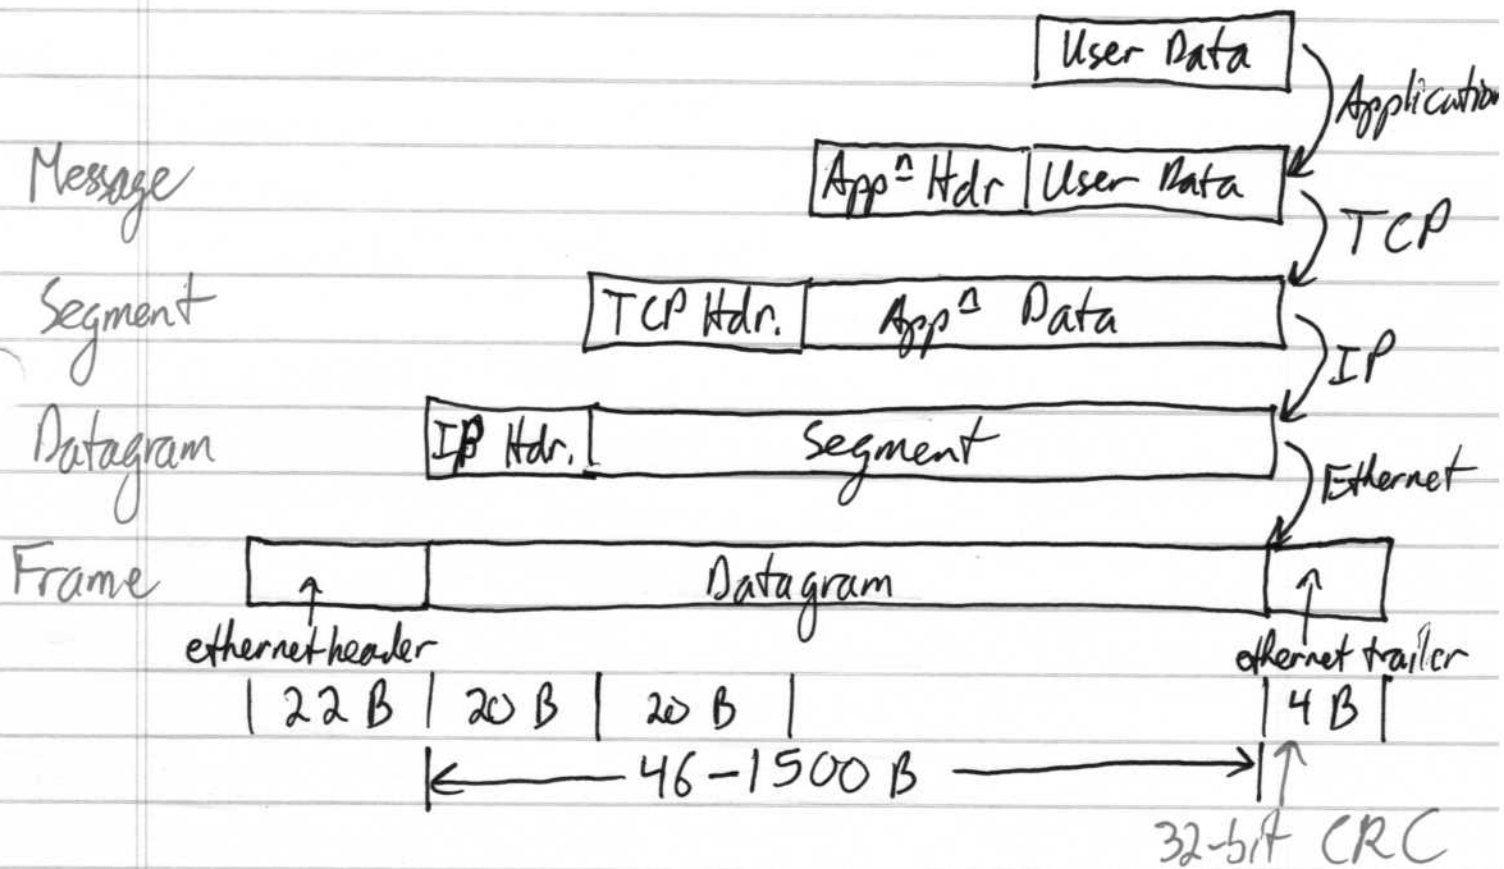 User Data
Application
Message
Appⁿ Hdr User Data
TCP
Segment
TCP Hdr. Appⁿ Data
IP
Datagram
IP Hdr. Segment
Ethernet
Frame
Datagram
ethernet header
ethernet trailer
22 B 20 B 20 B 4 B
46-1500 B
32-bit CRC